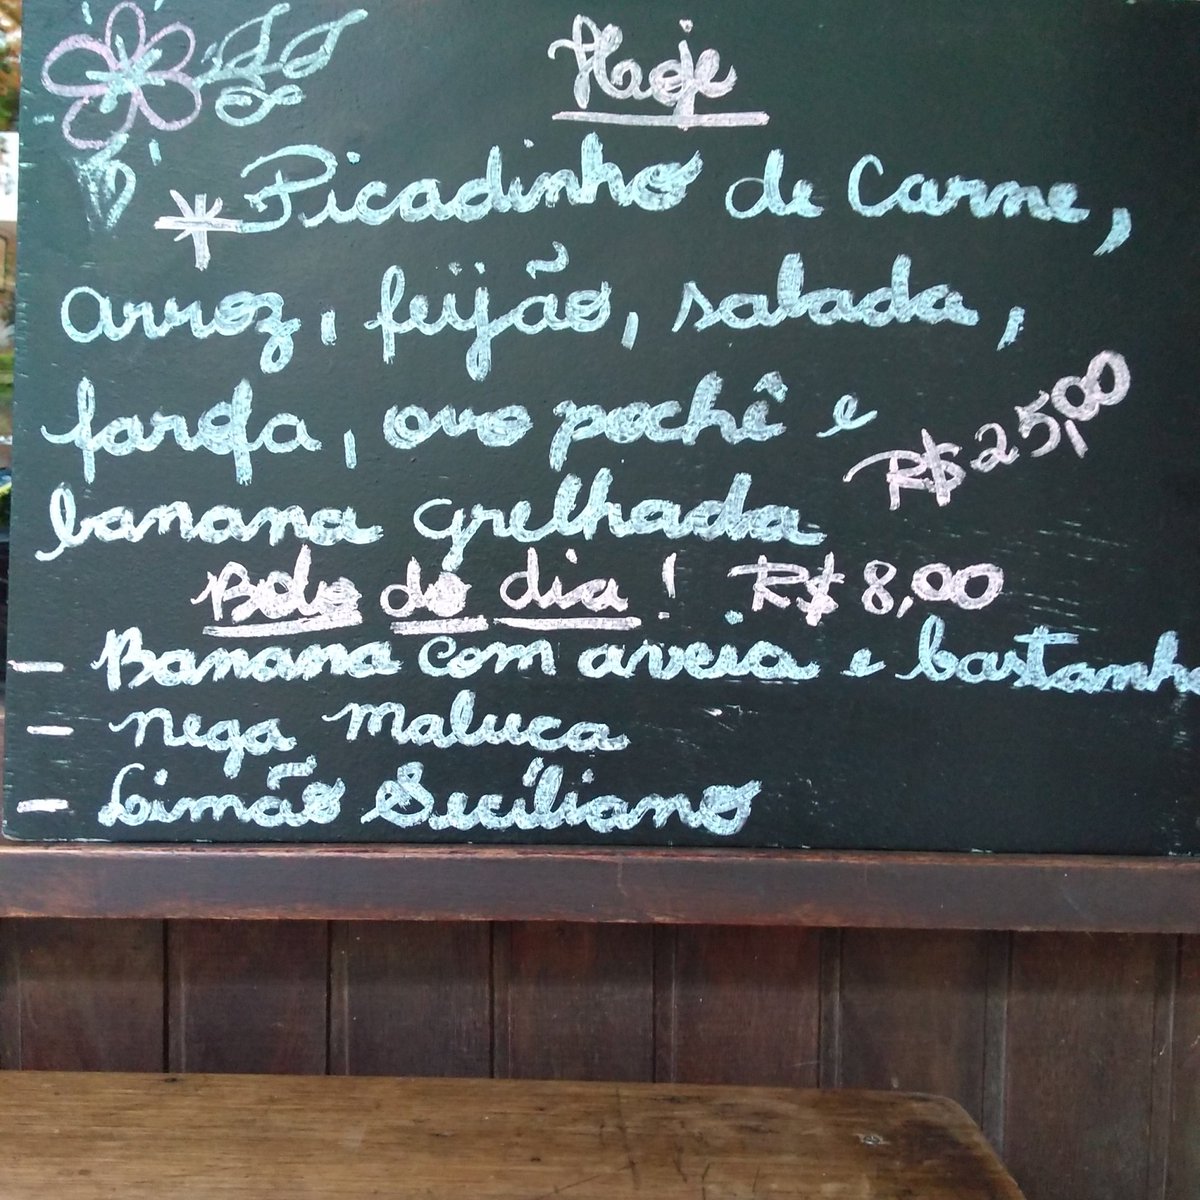 Hoje
* Picadinho de Carne,
arroz, feijão, salada,
farofa, ovo pochê e
banana grelhada
R$ 25,00
Bolo do dia! R$ 8,00
- Banana com aveia e castanha
- nega maluca
- Limão Siciliano